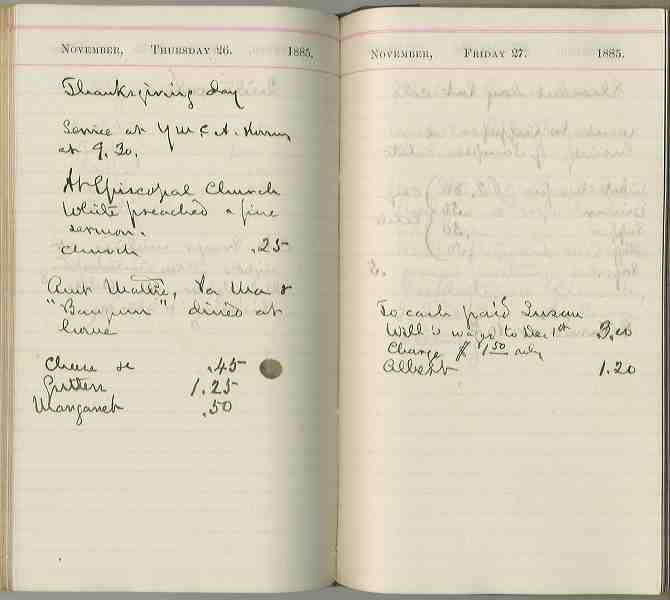 NOVEMBER, THURSDAY 26. 1885.
Thanksgiving day
Service at Y M C A.
at 9.30.
At Episcopal Church
White preached a fine
sermon.
Church .25
Aunt Mattie, Pa Ma &
" " dined at
home
Cheese &c .45
1.25
Margaret .50
NOVEMBER, FRIDAY 27. 1885.
To cash paid Susan
Will's wages to Dec 1st 3.00
Charge $1.50 only
Albert 1.20